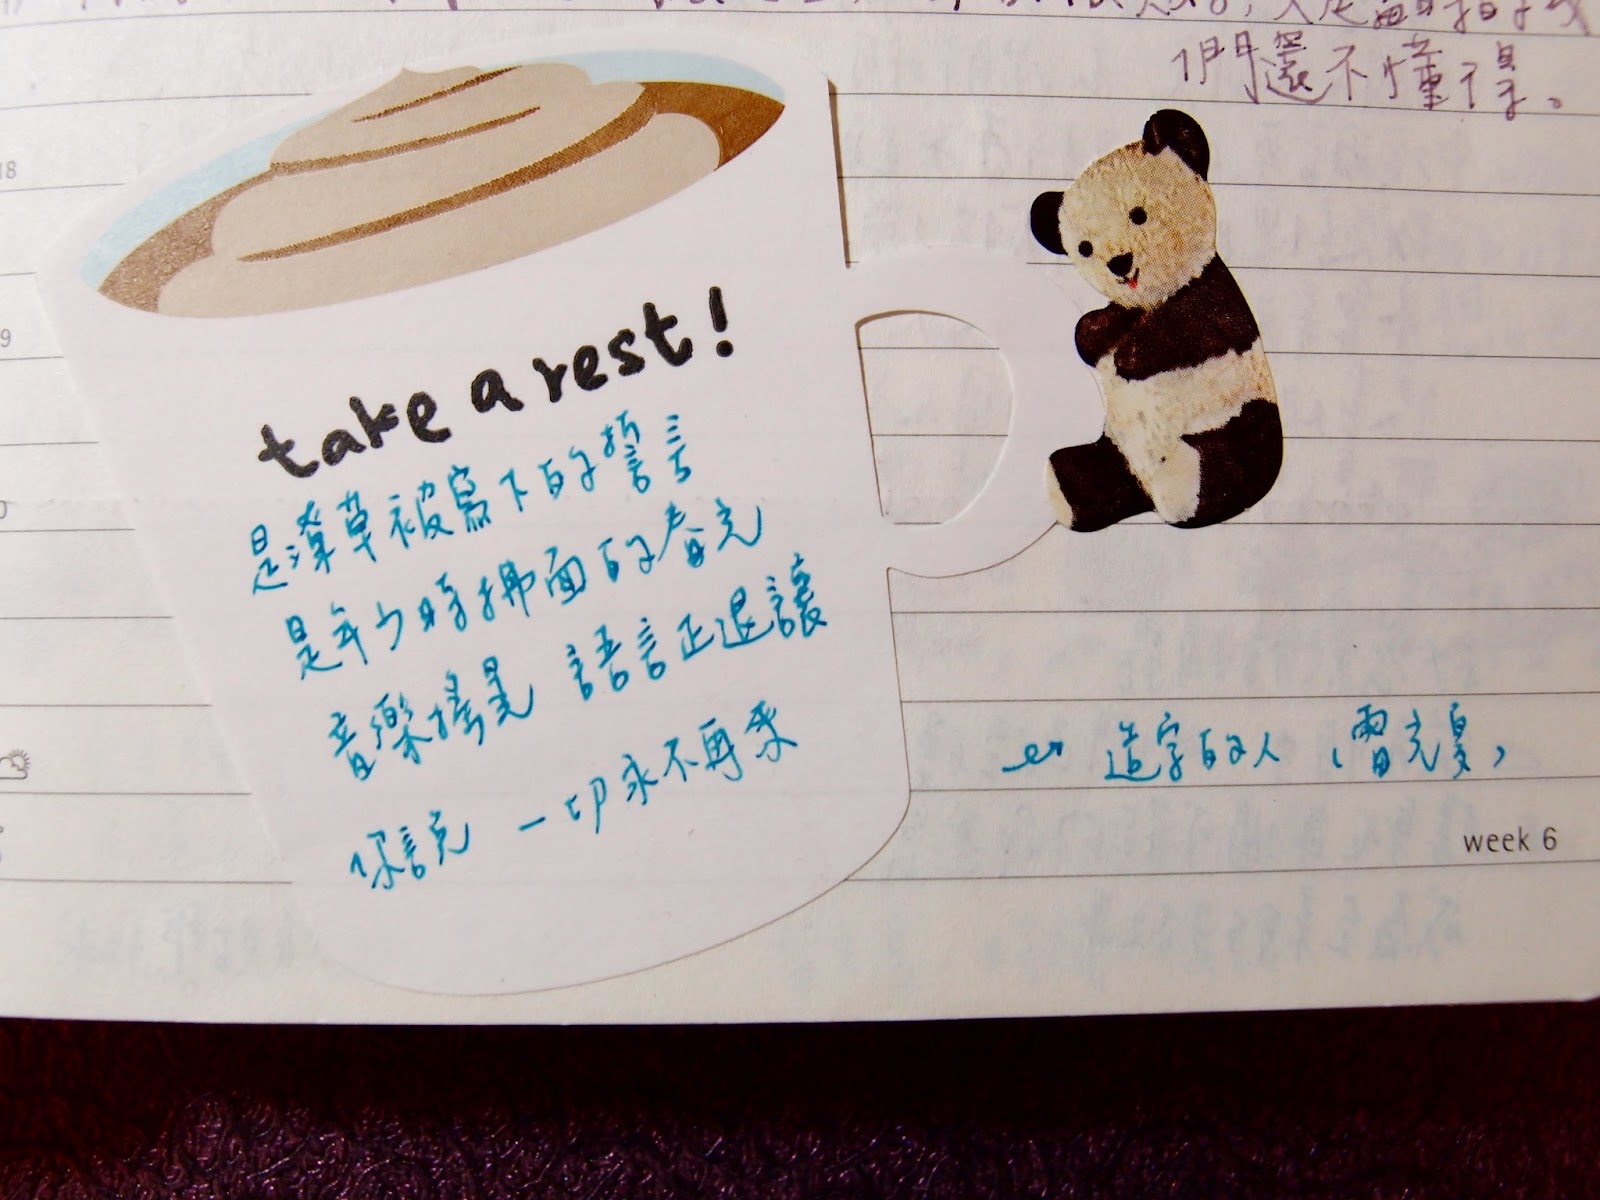 們還不懂得。
18
take a rest!
是潦草被寫下的誓言
是年少時拂面的春光
音樂搖晃 語言正退讓
你說完 一切永不再來
造字的人(雷光夏)
week 6